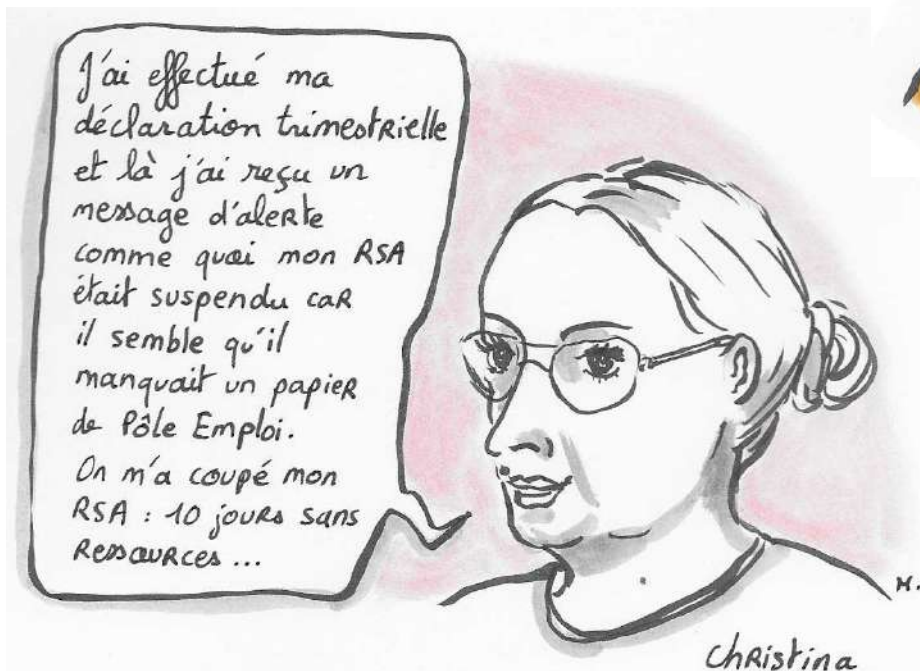 J'ai effectué ma
déclaration trimestrielle
et là j'ai reçu un
message d'alerte
comme quoi mon RSA
était suspendu car
il semble qu'il
manquait un papier
de Pôle Emploi.
On m'a coupé mon
RSA : 10 jours sans
Ressources ...
M.
Christina